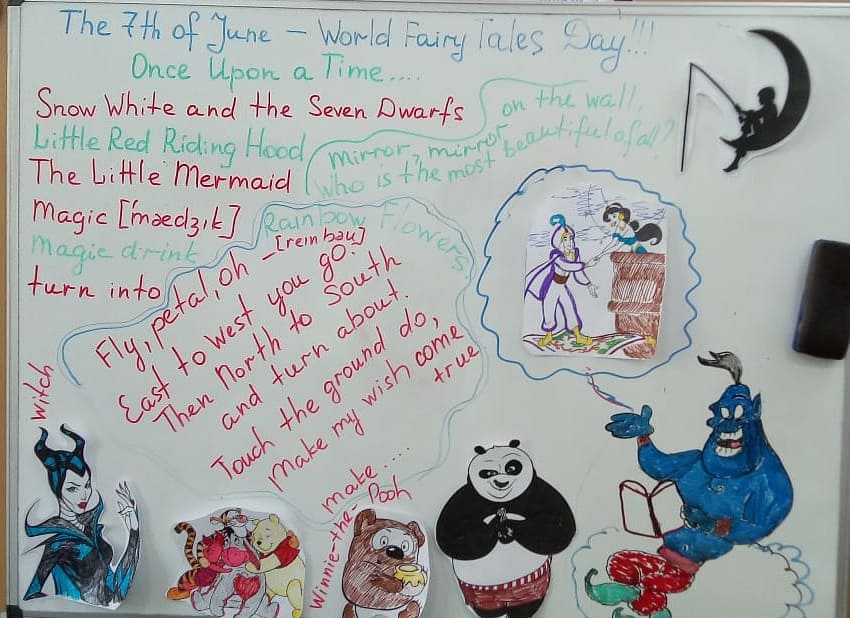 The 7th of June – World Fairy Tales Day!!!
Once Upon a Time....
Snow White and the Seven Dwarfs
Little Red Riding Hood
The Little Mermaid
Magic ['mædʒɪk]
magic drink
turn into
mirror, mirror on the wall,
who is the most beautiful of all?
Rainbow Flowers
[reinbəu]
Fly, petal, oh –
East to West you go.
Then North to South
and turn about.
Touch the ground do,
Make my wish come
true
make.....
witch
Winnie-the-Pooh